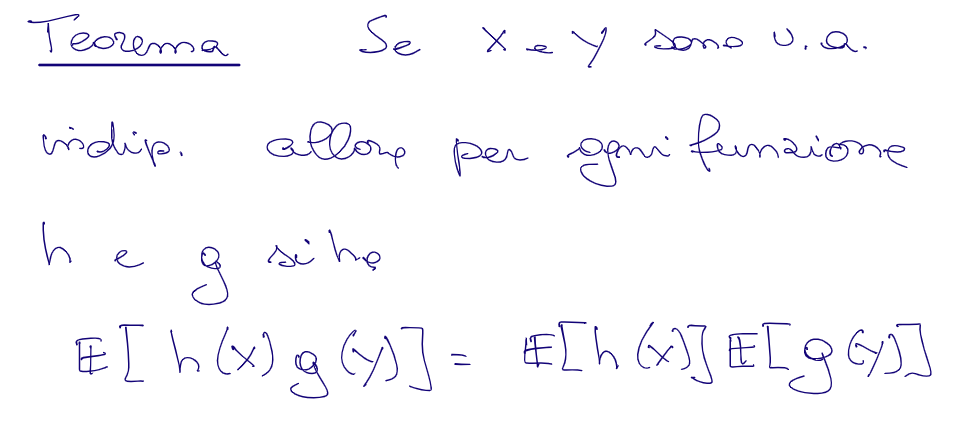 Teorema Se X e Y sono v.a.
indip. allora per ogni funzione
h e g si ha
𝔼[h(X) g(Y)] = 𝔼[h(X)] 𝔼[g(Y)]